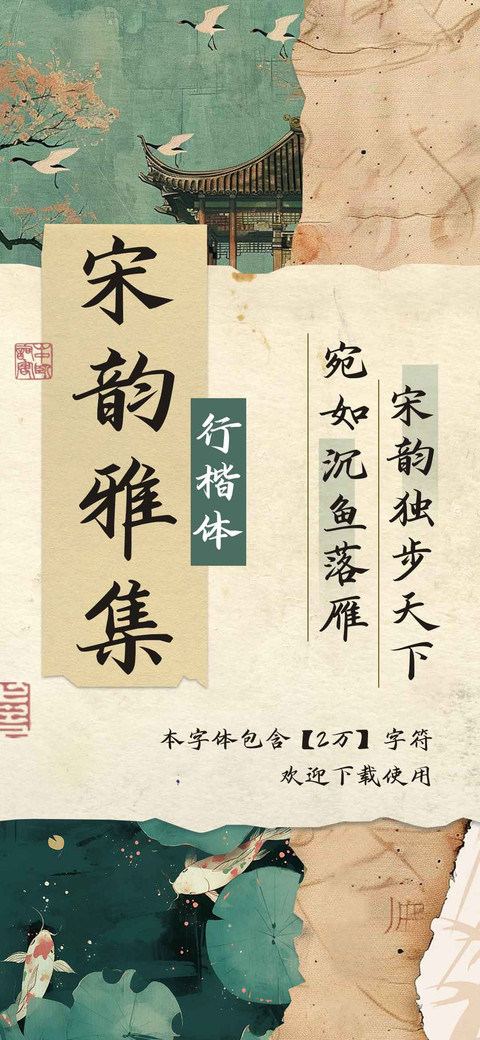 宋韵雅集
行楷体
宋韵独步天下
宛如沉鱼落雁
本字体包含【2万】字符
欢迎下载使用